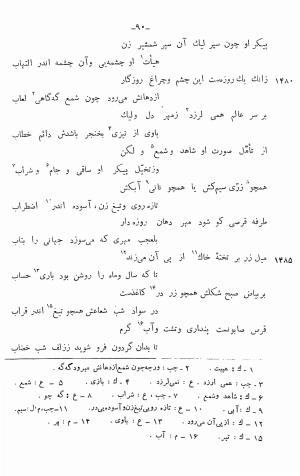 -۹۰-
پیکر او چون سپر لیك آن سپر شمشیر زن
هیأت۱ او چشمه‌یی وآن چشمه اندر التهاب
۱۴۸۰ زانك یك روزست این چشم وچراغ روزگار
ازدهانش می‌رود چون شمع گه‌گاهی۲ لعاب
بر سر عالم همی لرزد۳ زمهر دل ولیك
باوی از تیزی۴ بخنجر باشدش دائم خطاب
از تأمّل صورت او شاهد وشمع۵ و لكن
وزتخیّل پیکر او ساقی و جام۶ و شراب۷
همچو۸ زرّی سیم‌کش یا همچو نانی۹ آبکش
تازه روی وتیغ زن، آسوده اندر۱۰ اضطراب
طرفه قرصی کو شود مهر دهان روزه دار
بلعجب مهری که می‌سوزد جهانی را بتاب
۱۴۸۵ میل زر بر تختهٔ خاك۱۱ از پی آن می‌زند۱۲
تا که سال وماه را روشن بود باری۱۳ حساب
بربیاض صبح شکلش همچو زر در۱۴ کاغذست
در سواد شب شعاعش همچو تیغ۱۵ اندر قراب
قرص صابونست پنداری وتشت وآب۱۶ گرم
تا بدان گردون فرو شوید ززلف شب خضاب
۱ - ك: هیبت . ۲ - چپ: ورچه‌چون شمع‌ازدهانش میرودگه‌گه .
۳ - چپ: عمی ارزد . ع: نمی‌لرزد . ۴ - ك: بازی . ۵ - ع: شمع .
۶ - ك: شاهد وشمع . ۷ - چپ، ع: شراب . ۸ - ع: گه چو .
۹ - ك: آبی . ۱۰ - ع: تازه رویی‌تیغ‌زن‌وآسوده‌یی‌در. ۱۱ - چپ، م‌ال: سیم.
۱۲ - ك: ازپی‌آن می‌رود . ۱۳ - ع: یاوی . ۱۴ - م: بر .
۱۵ - ك: تیر. ۱۶ - م: آب .